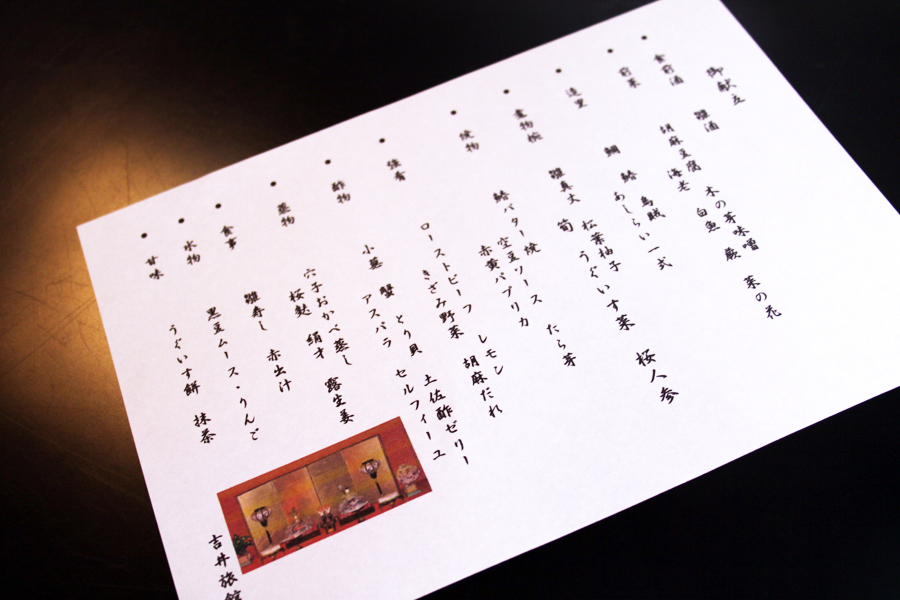 御献立
食前酒 雛酒
前菜 胡麻豆腐 木の芽味噌 菜の花
海老 白魚 蕨
造里 鯛 鮪 烏賊
あしらい一式
煮物椀 雛真丈 松葉柚子 うぐいす菜 桜人参
筍
焼物 鮐バター焼 空豆ソース たら芽
赤黄パプリカ
強肴 ローストビーフ レモン
きざみ野菜 胡麻だれ
酢物 小蕪 蟹 とり貝 土佐酢ゼリー
アスパラ セルフィーユ
蒸物 穴子おかべ蒸し 露生姜
桜麩 絹才
食事 雛寿し 赤出汁
水物 黒豆ムース・りんご
甘味 うぐいす餅 抹茶
吉井旅館